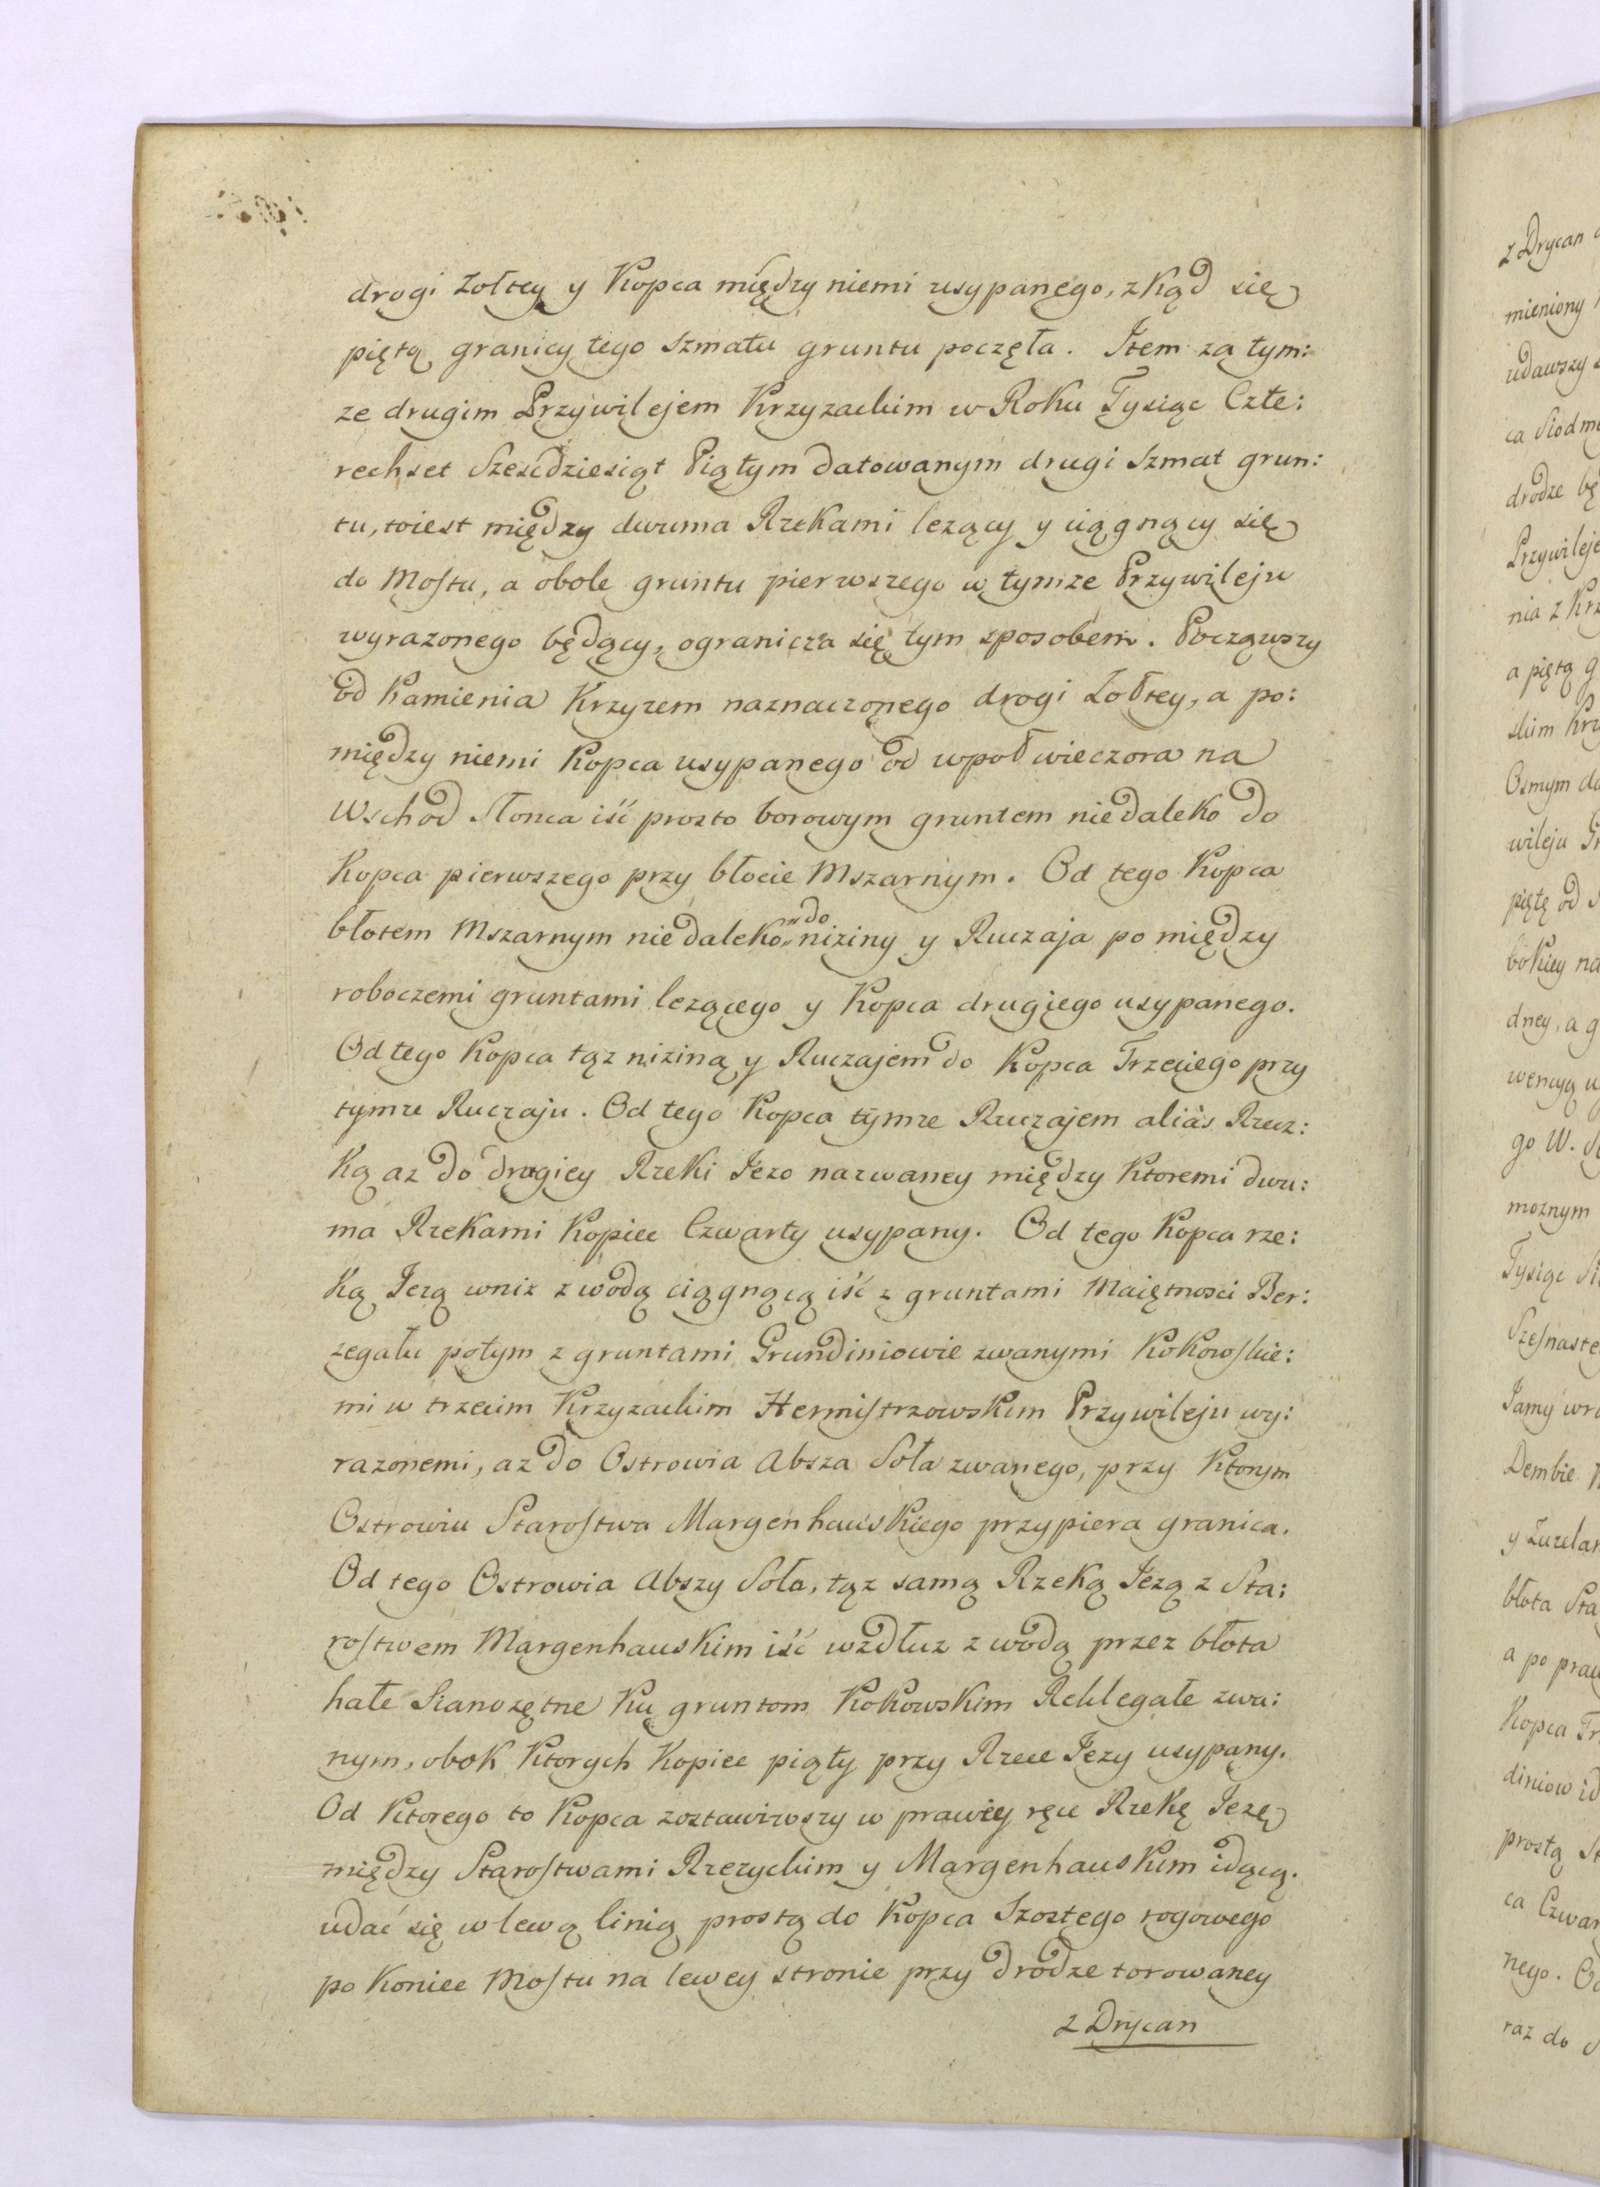 drogi Zołtey y Kopca między niemi usypanego, zkąd się
piętą granicy tego szmatu gruntu poczęła. Item za tym:
ze drugim Przywilejem Krzyzackim w Roku Tysiąc Czte:
rechset Szescdziesiąt Piątym datowanym drugi szmat grun:
tu, toiest między dwuma Rzekami lezący y ciągnący się
do Mostu, a obole gruntu pierwszego w tymze Przywileju
wyrazonego będący, ogranicza się tym sposobem. Począwszy
od Kamienia Krzyzem naznaczonego drogi Zołtey, a po:
między niemi Kopca usypanego od wpoł wieczora na
Wschod Słonca iść prosto borowym gruntem niedaleko do
Kopca pierwszego przy błocie Mszarnym. Od tego Kopca
błotem Mszarnym niedaleko do niziny y Ruczaja pomiędzy
roboczemi gruntami lezącego y Kopca drugiego usypanego.
Od tego Kopca tąz niziną y Ruczajem do Kopca Trzeciego przy
tymze Ruczaju. Od tego Kopca tymze Ruczajem aliàs Rzecz:
ką az do drugiey Rzeki Jezo nazwaney między Ktoremi dwu:
ma Rzekami Kopiec Czwarty usypany. Od tego Kopca rze:
ką Jezą wniz z wodą ciągnącą iść z gruntami Maiętnosci Ber:
zegału potym z gruntami Grundiniowie zwanymi Kokowskie:
mi w trzecim Krzyzackim Hermistrzowskim Przywileju wy:
razonemi, az do Ostrowia Absza Soła zwanego, przy Ktorym
Ostrowiu Starostwa Margenhauskiego przypiera granica.
Od tego Ostrowia Abszy Soła, tąz samą Rzeką Jezą z Sta:
rostwem Margenhauskim iść wzdłuz z wodą przez błota
hałe Sianozętne Ku gruntom Kokowskim Rekłegałe zwa:
nym, obok Ktorych Kopiec piąty przy Rzece Jezy usypany.
Od Ktorego to Kopca zostawiwszy w prawey ręce Rzekę Jezę
między Starostwami Rzezyckim y Margenhauskim idącą.
udać się w lewą linią prostą do Kopca Szostego rogowego
po Koniec Mostu na lewey stronie przy drodze torowaney
z Drycan
z Drycan
mieniony
udawszy
ca Siodm
drodze bę
Przywileje
nia z Krz
a piętą g
skim Krz
Osmym da
wileju Gr
piętę od
bokiey na
dney, a g
wencyą
go W.
moznym
Tysiąc
Szesnaste
Jamy
Dembie
y
błota Sta
a po praw
Kopca Tr
diniow id
prostą
ca Czwar
nego. Od
raz do